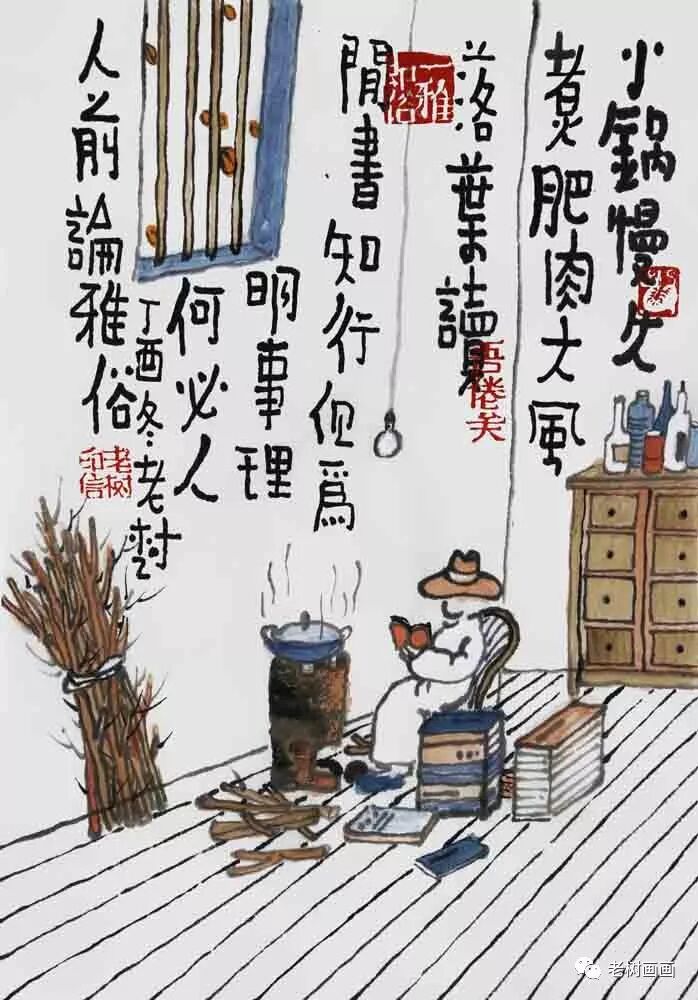 小鍋慢火
煮肥肉大風
落葉讀
閒書知行但爲
明事理
何必人
人前論雅俗
丁酉冬老树
老树印信
老树画画